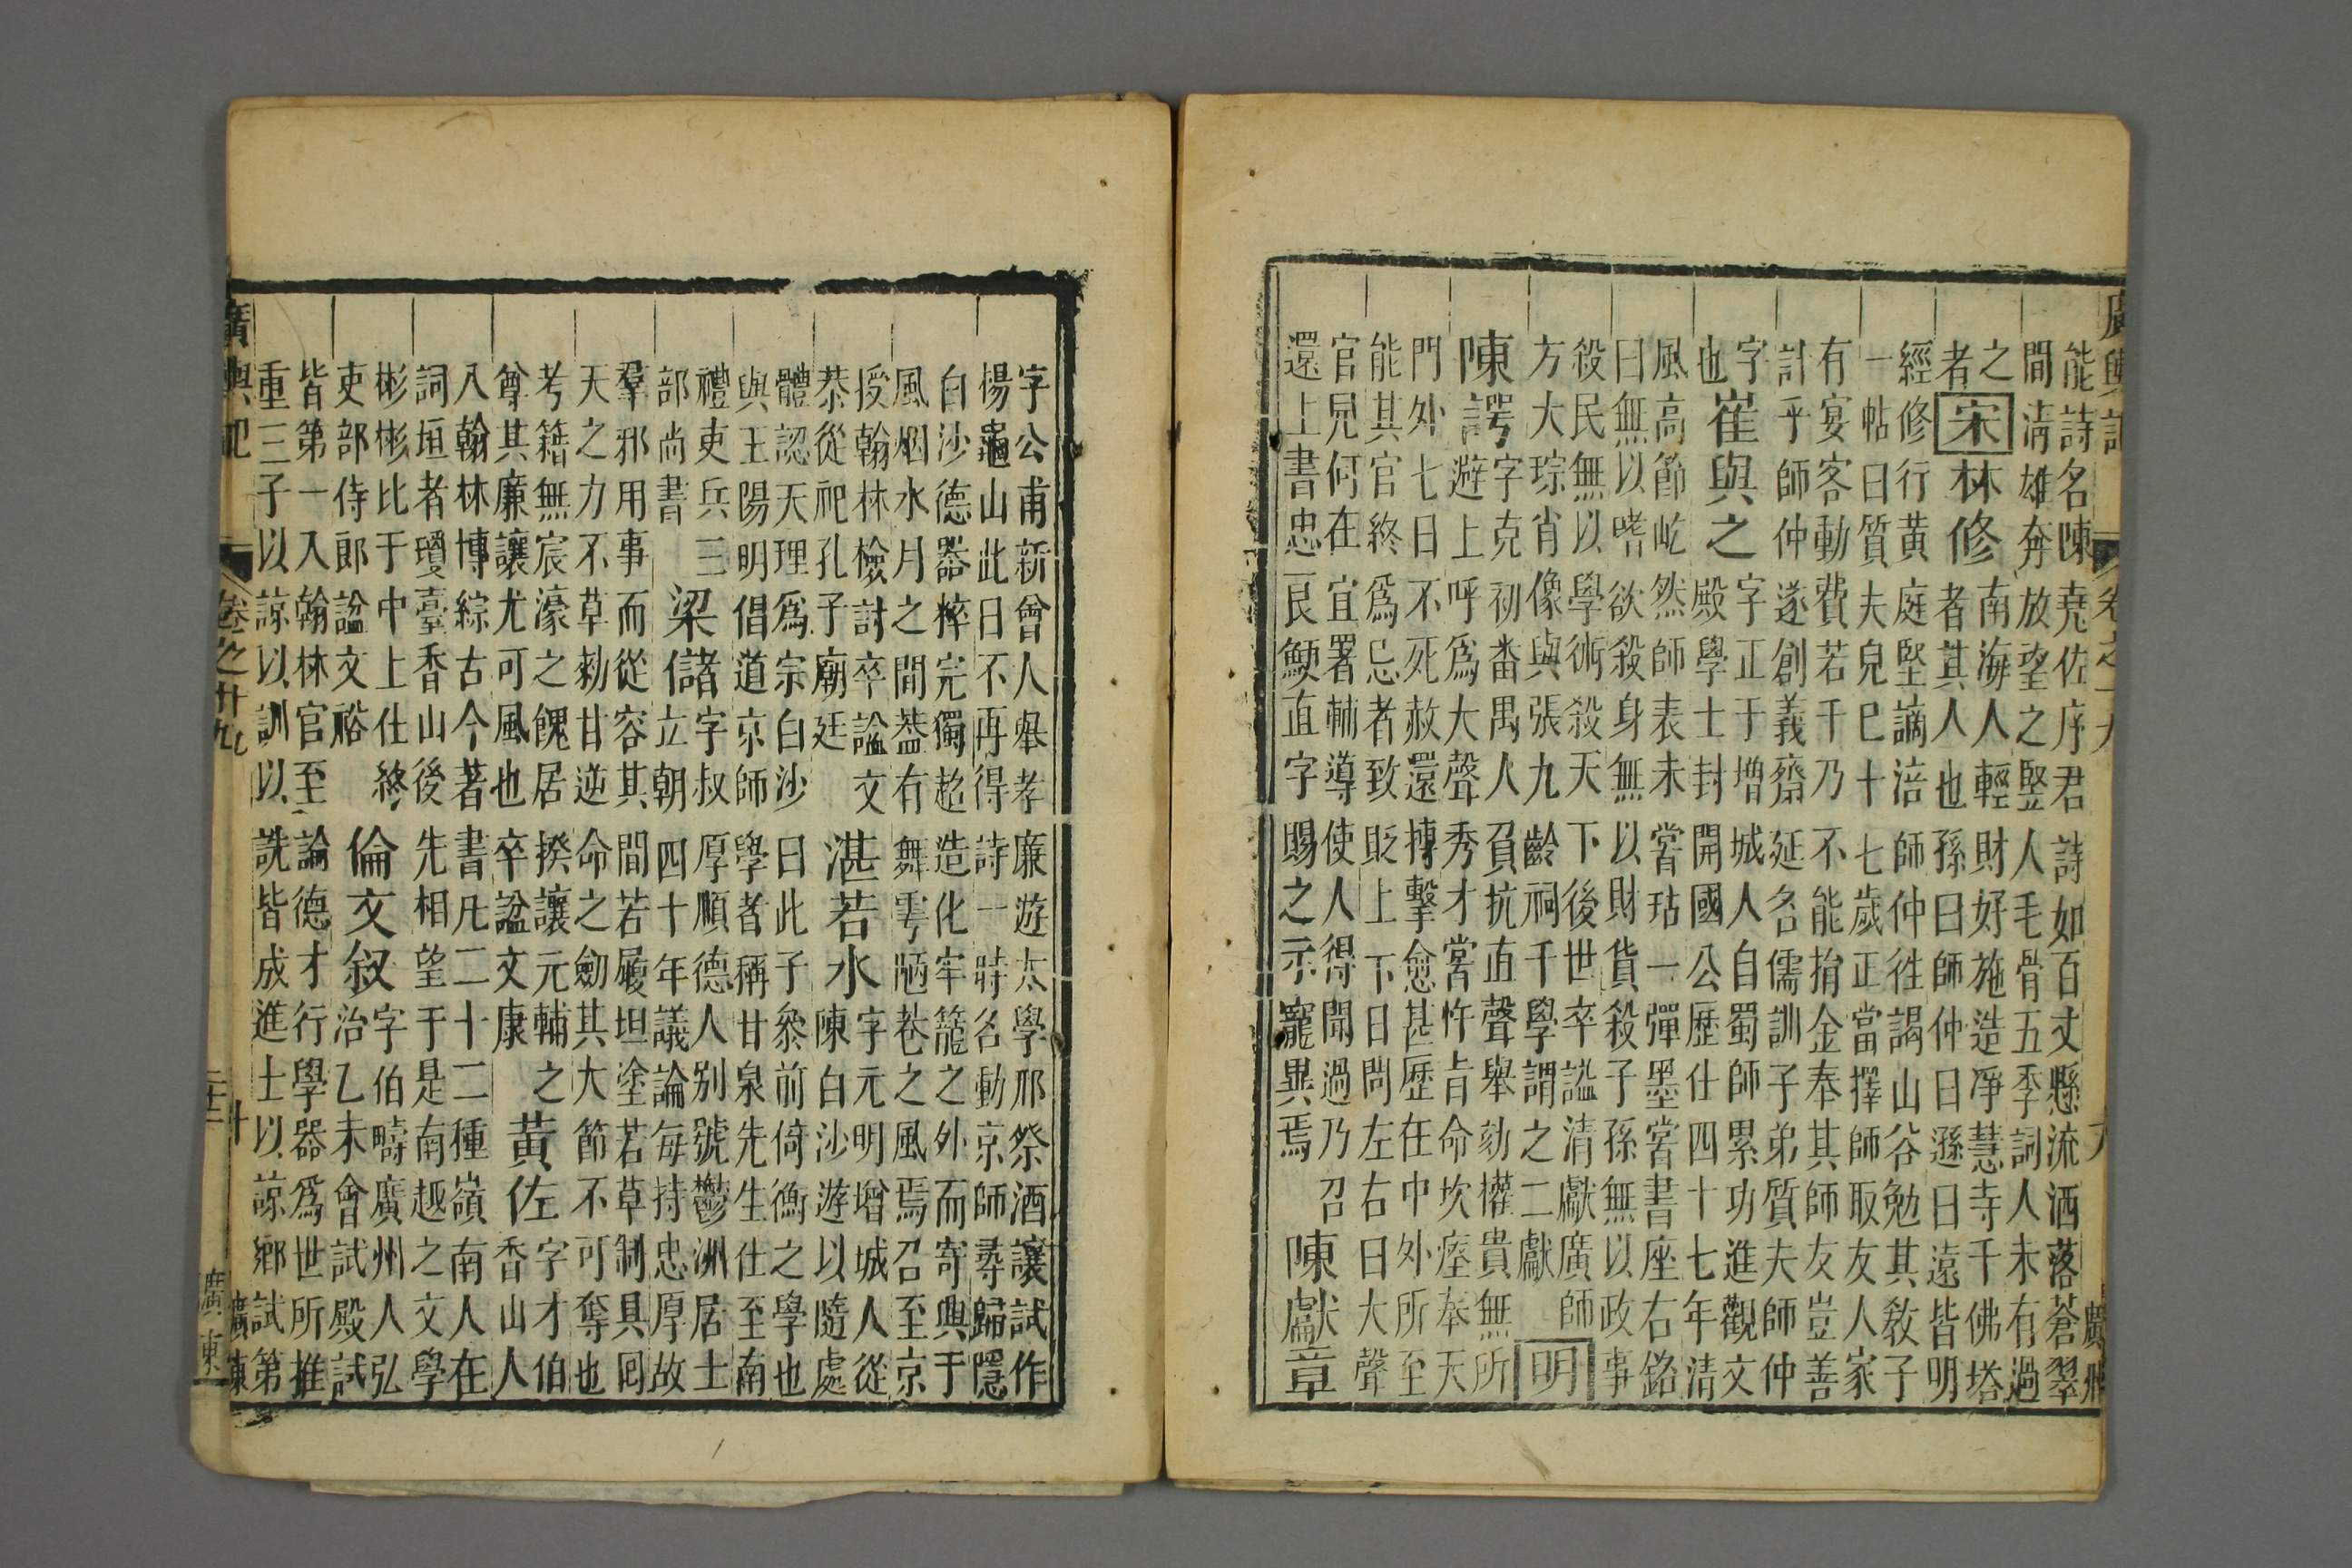 能詩名陳堯佐序君詩如百丈懸流洒落蒼翠
間清雄奔放望之竪人毛骨五季詞人未有過
之者
宋
林修
南海人輕財好施造凈慧寺千佛塔
者其人也孫曰師仲曰遜曰遠皆明
經修行黃庭堅謫涪師仲徃謁山谷勉其敎子
一帖曰質夫兒巳十七歲正當擇師取友人家
有宴客動費若干乃不能捐金奉其師友豈善
計乎師仲遂創義齋延名儒訓子弟質夫師仲
字也
崔與之
字正于增城人自蜀師累功進觀文
殿學士封開國公歷仕四十七年清
風高節屹然師表未甞玷一彈墨甞書座右銘
曰無以嗜欲殺身無以財貨殺子孫無以政事
殺民無以學術殺天下後世卒諡清獻廣師
方大琮肖像與張九齡祠千學謂之二獻
明
陳諤
字克初番禺人負抗直聲舉劾權貴無所
遊上呼爲大聲秀才甞忤旨命坎瘞奉天
門外七日不死赦還摶擊愈甚歷在中外所至
能其官終爲忌者致貶上下日問左右曰大聲
官兒何在宜署輔導使人得聞過乃召
還上書忠艮鯁直字賜之示寵異焉
陳獻章
字公甫新會人舉孝廉遊太學邢祭酒讓試作
楊龜山此日不再得詩一時名動京師尋歸隱
白沙德器粹完獨超造化牢籠之外而寄興于
風烟水月之間葢有舞雩陋巷之風焉召至京
授翰林檢討卒諡文
恭從祀孔子廟廷
湛若水
字元明增城人從
陳白沙遊以隨處
體認天理爲宗白沙曰此子參前倚衡之學也
與王陽明倡道京師學者稱甘泉先生仕至南
禮吏兵三
部尚書
梁儲
字叔厚順德人别號鬱洲居士
立朝四十年議論每持忠厚故
羣邪用事而從容其間若履坦塗若草制具囘
天之力不草勑甘逆命之劍其大節不可奪也
考籍無宸濠之餽居揆讓元輔之
尊其廉讓尤可風也卒諡文康
黃佐
字才伯
香山人
入翰林博綜古今著書凡二十二種嶺南人在
詞垣者瓊臺香山後先相望于是南越之文學
彬彬比于中上仕終
吏部侍郎諡文裕
倫文叙
字伯疇廣州人弘
治乙未會試殿試
皆第一入翰林官至諭德才行學器爲世所推
重三子以諒以訓以詵皆成進士以諒鄉試第
廣輿記
卷之十九
廣東